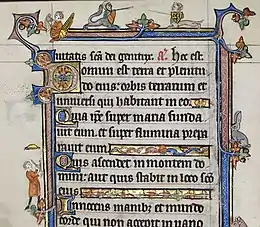 iuitatis scā dei genitrix a Hec est
Domini est terra et plenitu
do eius: orbis terrarum et
uniuersi qui habitant in eo
Quia ipse super maria funda
uit eum: et super flumina prepa
rauit eum
Quis ascendet in montem do
mini: aut quis stabit in loco scō
eius
Innocens manibus et mundo
corde qui non accepit in uano